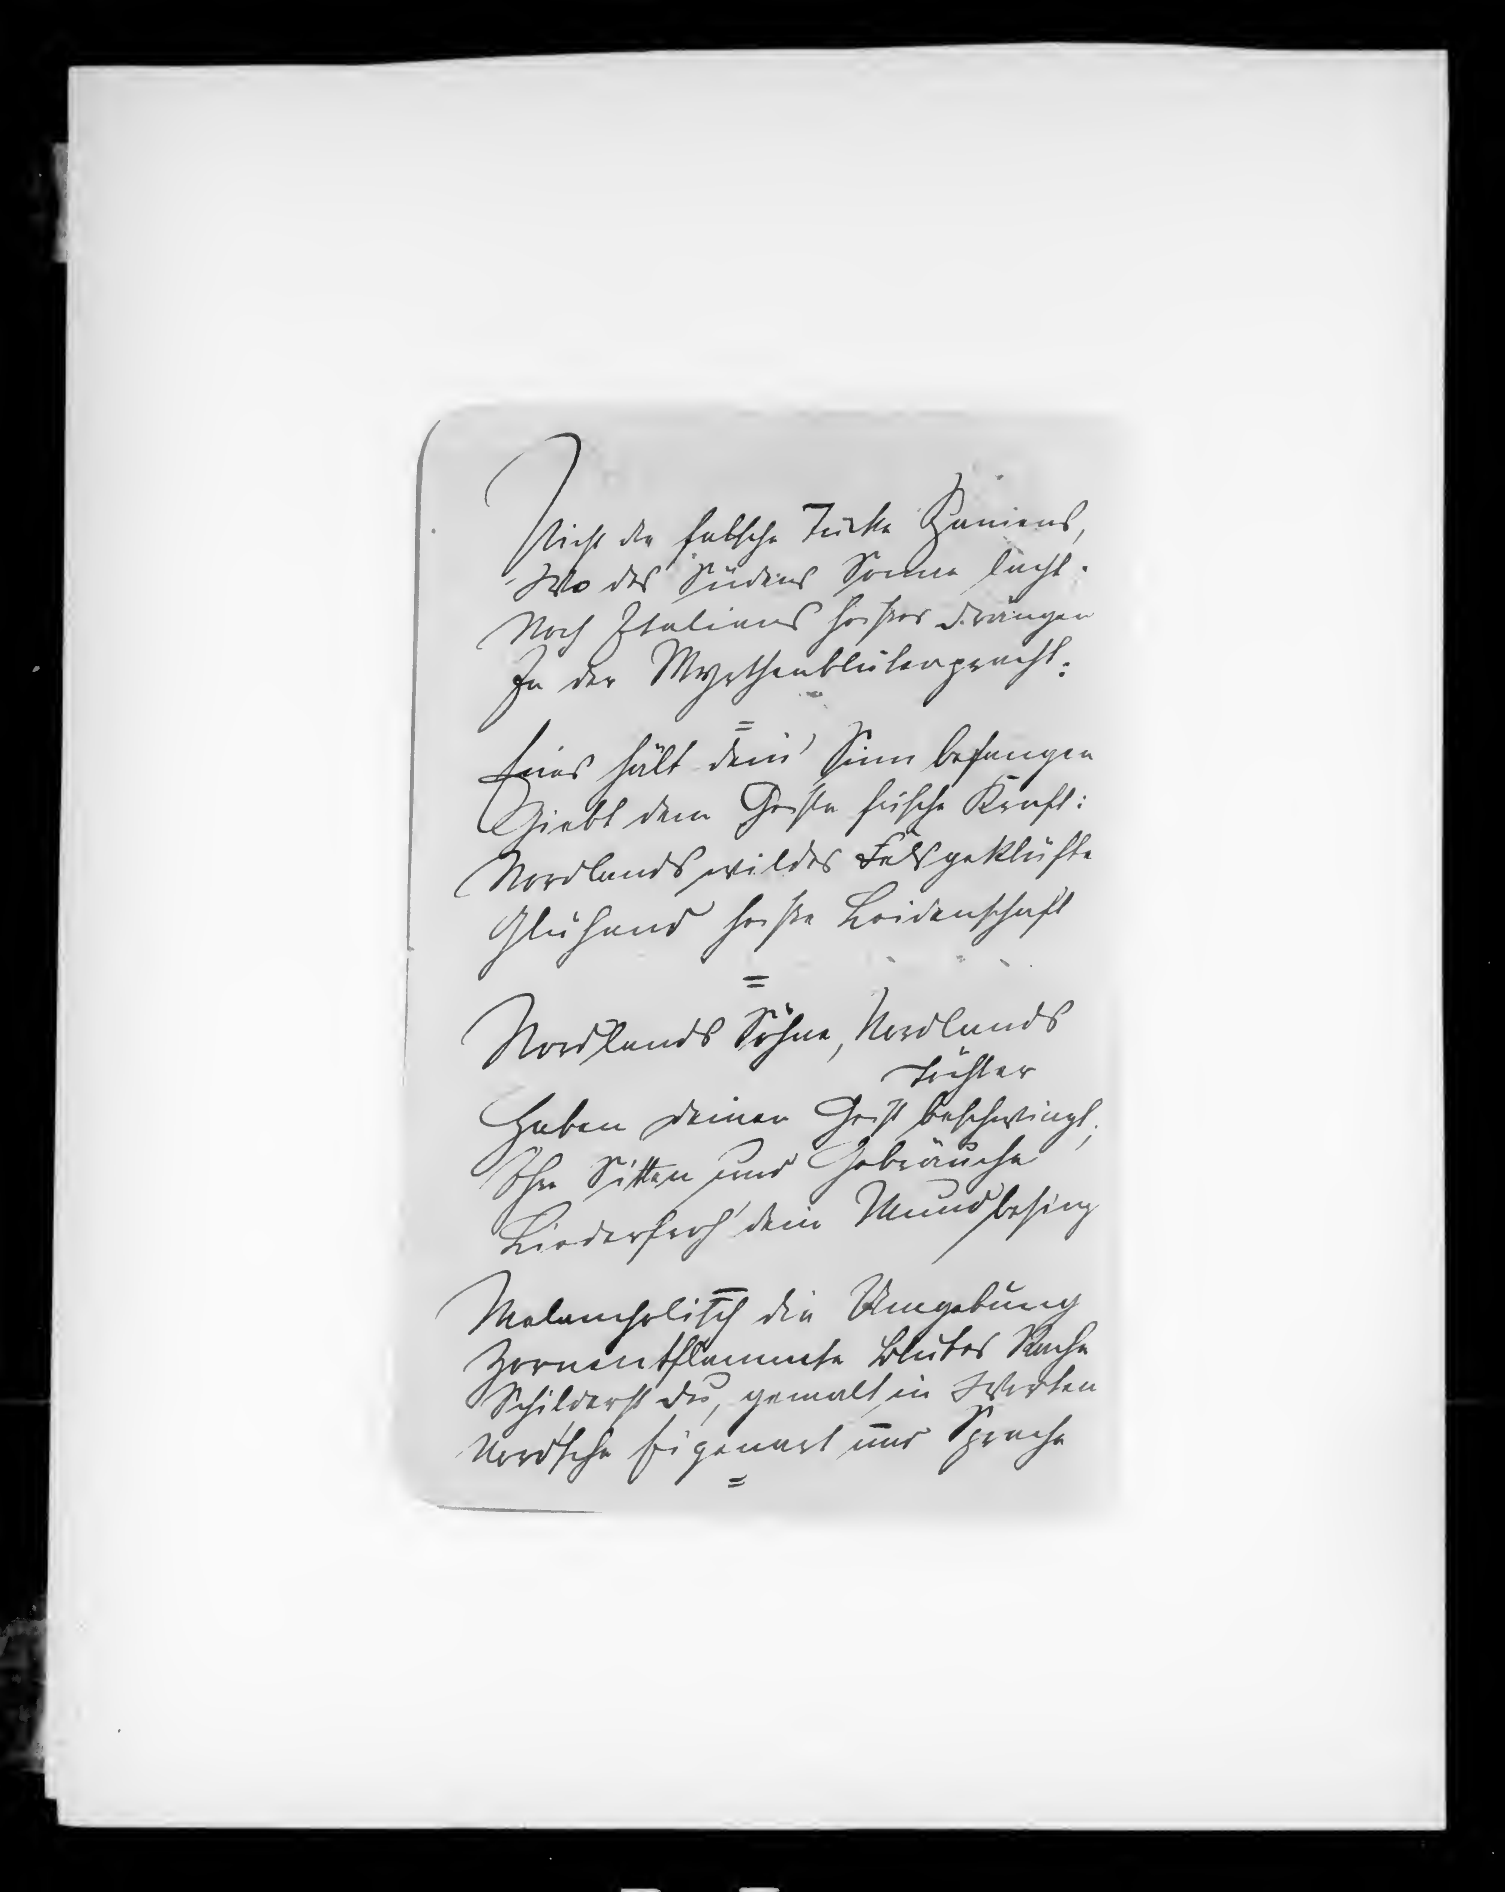 Nicht die falsche Tücke Spaniens,
Wo des Südens Sonne lacht.
Noch Italiens heißes Drängen
In der Myrthenblütenpracht:
=
Eines hält dein' Sinn befangen
Giebt dem Geiste frische Kraft:
Nordlands wildes Felsgeklüfte
Glühend heiße Leidenschaft
=
Nordlands Söhne, Nordlands
Töchter
Haben deinen Geist beschwingt;
Ihre Sitten und Gebräuche
Liederfroh dein Mund besing
=
Melancholisch die Umgebung
Zornentflammte Blutes Rache
Schilderst du, gemalt in Worten
Nord'sche Eigenart und Sprache
=